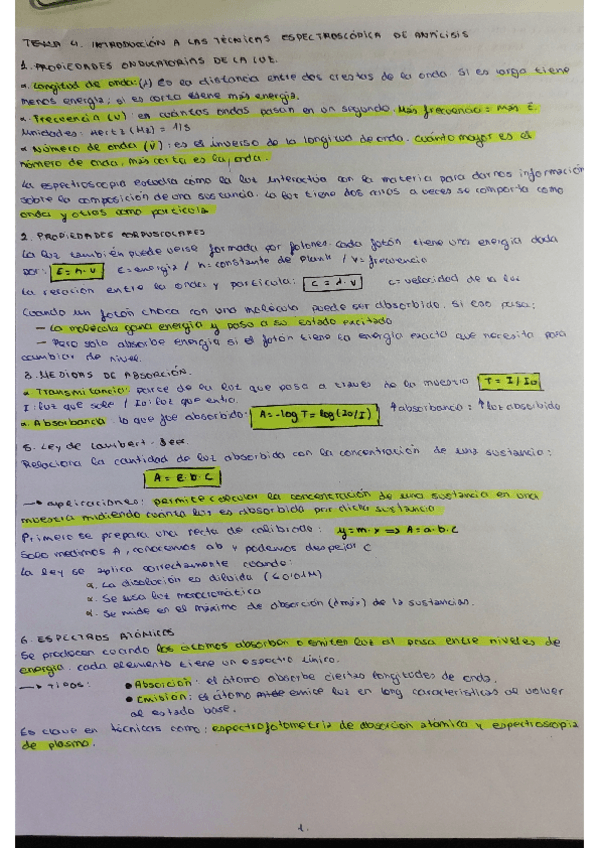 TEMA 4. INTRODUCCIÓN A LAS TÉCNICAS ESPECTROSCÓPICA DE ANÁLISIS
1. PROPIEDADES ONDULATORIAS DE LA LUZ.
α. Longitud de onda: (λ) Es la distancia entre dos crestas de la onda si es larga tiene
menos energía; si es corta tiene más energía.
α. Frecuencia (ν): en cuántas ondas pasan en un segundo. Más frecuencia = más E.
Unidades: Hertz (Hz) = 1/s
α Número de onda (ν̄): es el inverso de la longitud de onda. Cuánto mayor es el
número de onda, más corta es la onda.
La espectroscopia estudia cómo la luz interactúa con la materia para darnos información
sobre la composición de una sustancia. La luz tiene dos a veces se comporta como
onda y otros como partícula
2. PROPIEDADES CORPUSCULARES
La luz también puede verse formada por fotones. cada fotón tiene una energía dada
por: E = h · ν E = energía / h = constante de Plank / ν = frecuencia
La relación entre la onda y partícula: C = λ · ν c = velocidad de la luz
Cuando un fotón choca con una molécula puede ser absorbido, si eso pasa:
— La molécula gana energía y pasa a su estado excitado
— Pero solo absorbe energía si el fotón tiene la energía exacta que necesita para
cambiar de nivel.
3. MEDIDAS DE ABSORCIÓN.
α Transmitancia: parte de la luz que pasa a través de la muestra T = I/Io
I: luz que sale / Io: luz que entro.
α. Absorbancia: lo que fue absorbido: A = -log T = log (Io/I) ↑absorbancia: ↑luz absorbida
5. Ley de Lambert-Beer.
Relaciona la cantidad de luz absorbida con la concentración de una sustancia:
A = ε · b · C
—• aplicaciones: permite calcular la concentración de una sustancia en una
muestra midiendo cuanta luz es absorbida por dicha sustancia
Primero se prepara una recta de calibrado: y = m · x => A = a · b · C
Solo medimos A, conocemos ab y podemos despejar C
La ley se aplica correctamente cuando:
α. La disolución es diluida (≤ 0'01M)
α. Se usa luz monocromática
α. Se mide en el máximo de absorción (λmáx) de la sustancias.
6. ESPECTROS ATÓMICOS
Se producen cuando los átomos absorben o emiten luz al pasa entre niveles de
energía. cada elemento tiene un espectro único.
—• Tipos: • Absorción: el átomo absorbe ciertas longitudes de onda.
• Emisión: el átomo emite luz en long características al volver
al estado base.
Es clave en técnicas como: espectrofotometría de absorción atómica y espectroscopia
de plasma.
1.